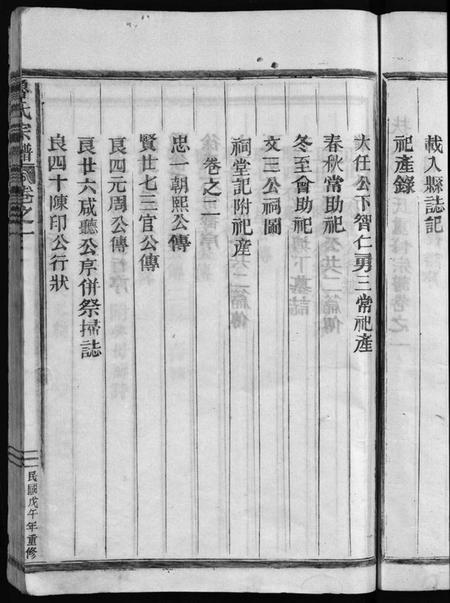 載入縣誌記
祀產錄
大任公下智仁勇三常祀產
春秋常助祀
冬至會助祀
文三公祠圖
卷之二
祠堂記附祀產
忠一朝熙公傳
賢廿七三官公傳
良四元周公傳
良廿六咸聽公序併祭掃誌
良四十陳印公行狀
氏宗譜
卷之一
民國戊午年重修